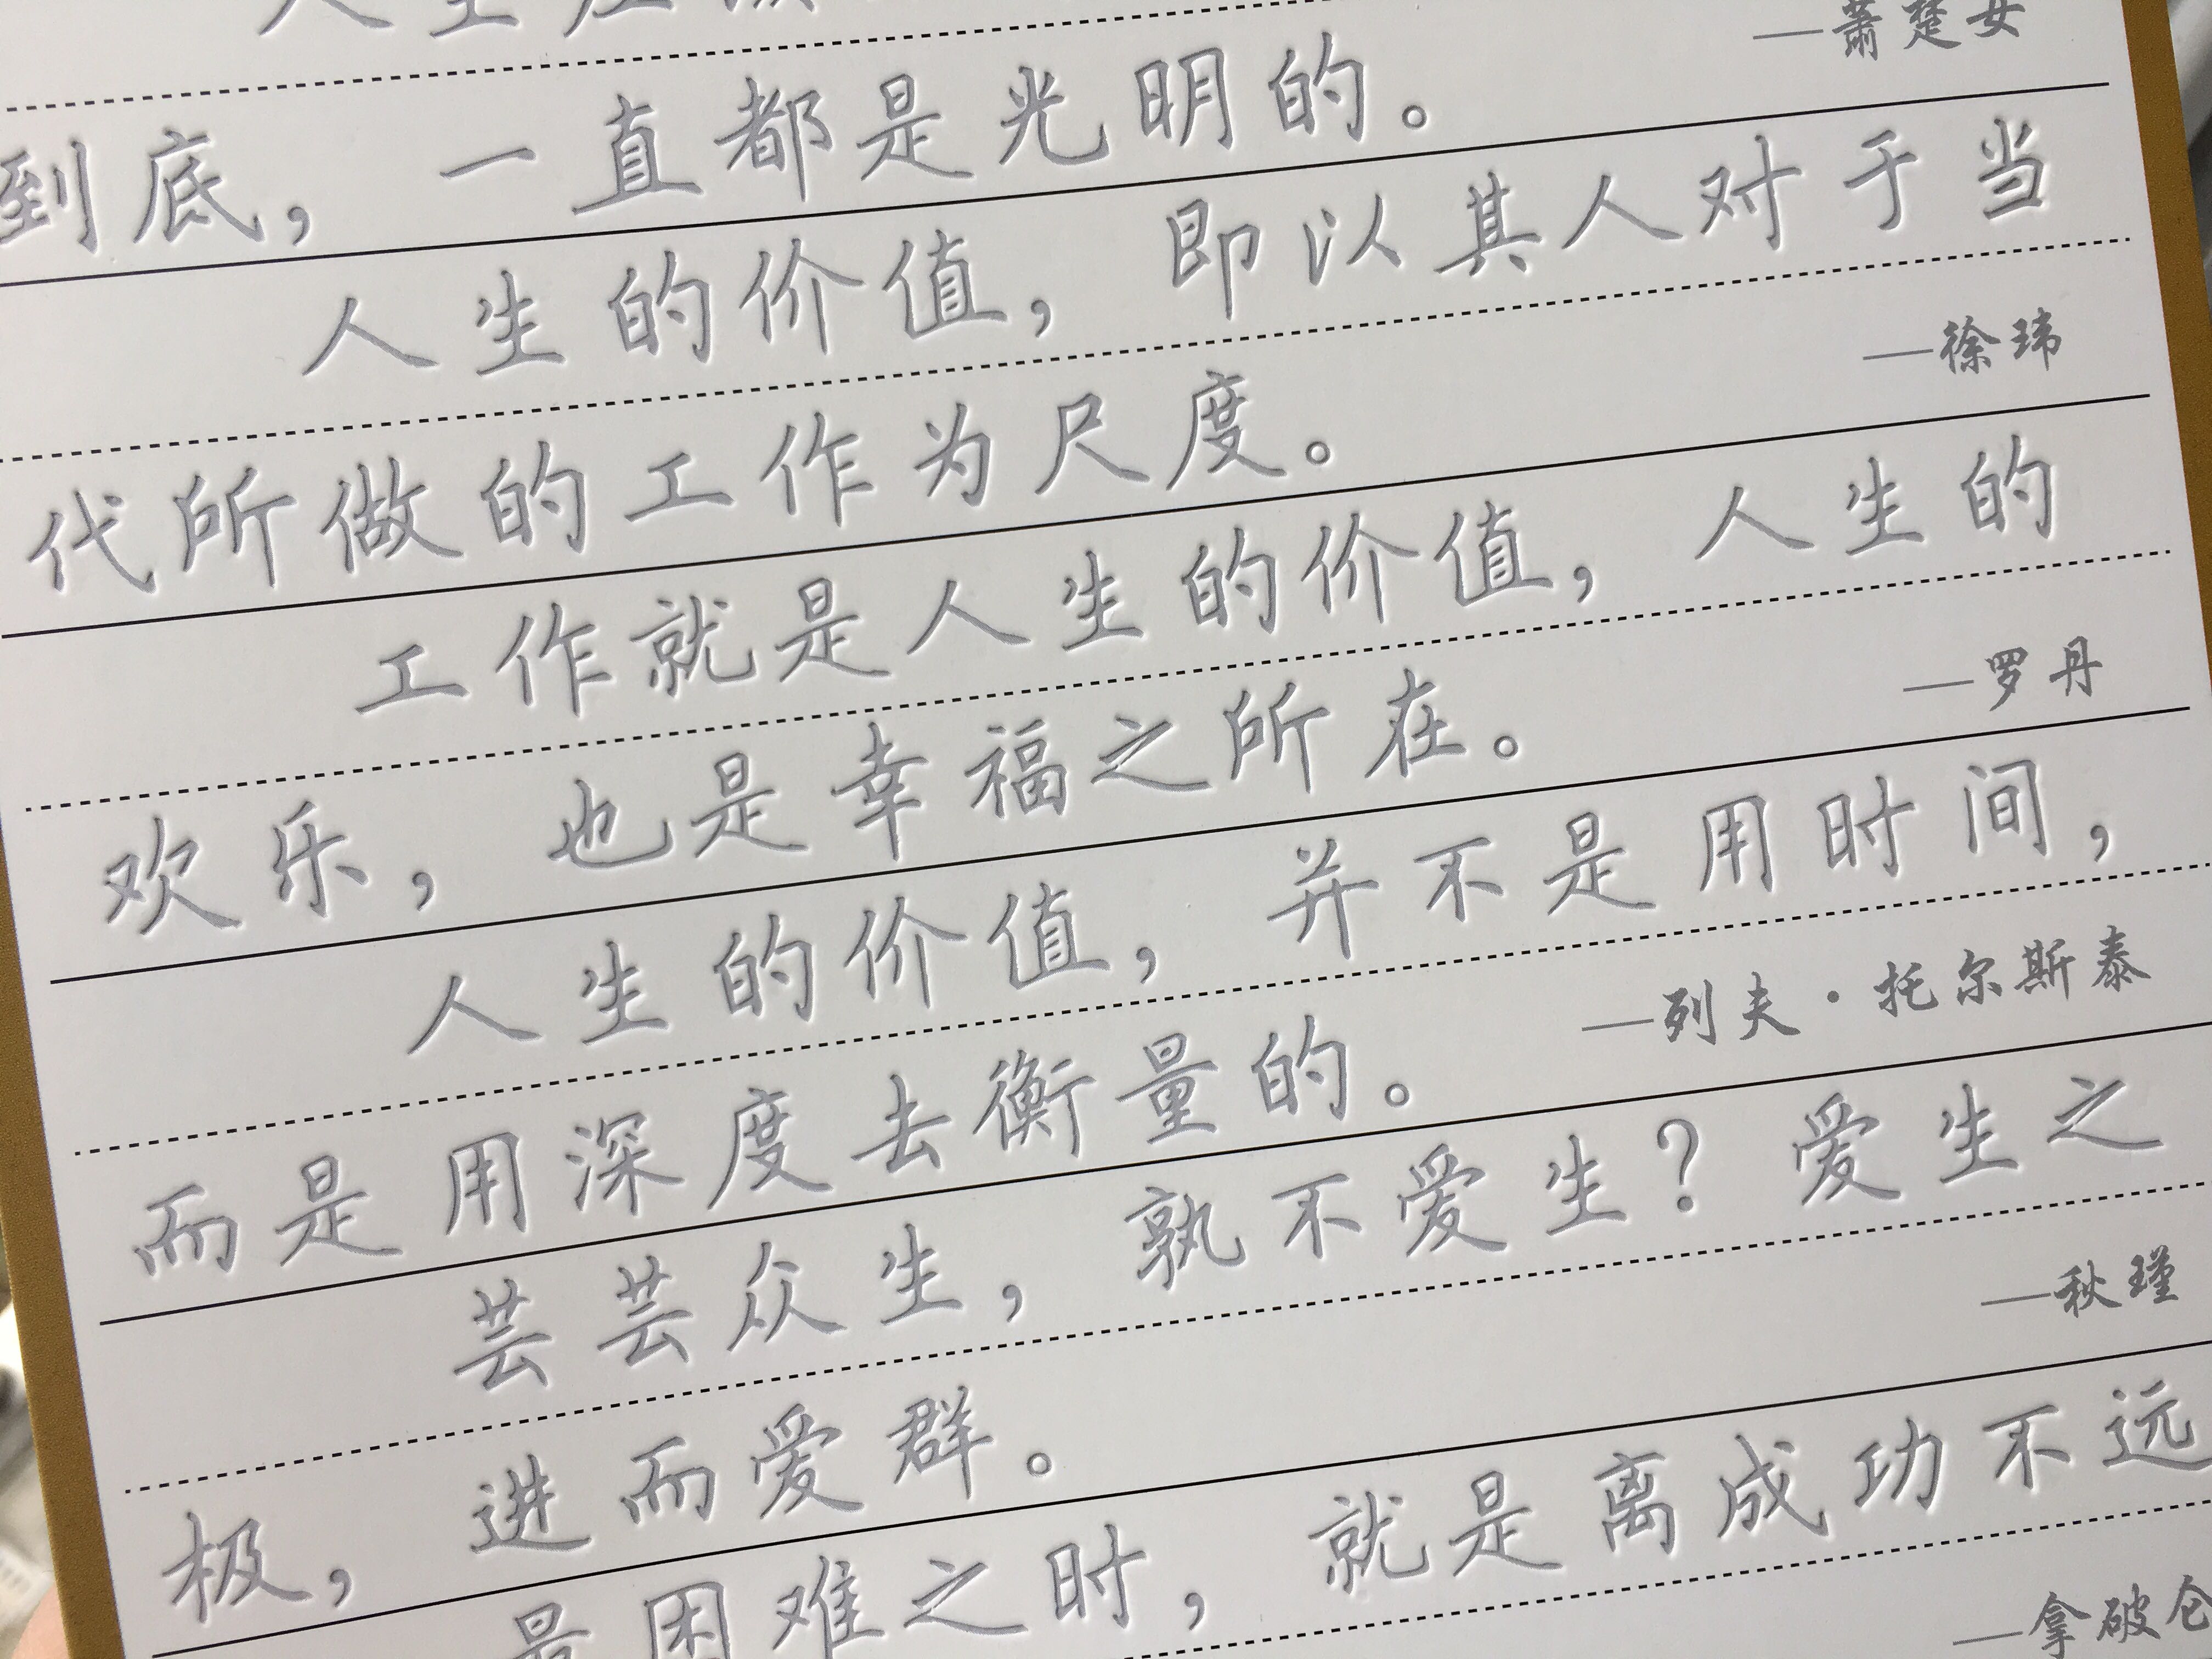 人生应该
—萧楚女
到底，一直都是光明的。
人生的价值，即以其人对于当
—徐玮
代所做的工作为尺度。
工作就是人生的价值，人生的
—罗丹
欢乐，也是幸福之所在。
人生的价值，并不是用时间，
—列夫·托尔斯泰
而是用深度去衡量的。
芸芸众生，孰不爱生？爱生之
—秋瑾
极，进而爱群。
最困难之时，就是离成功不远
—拿破仑